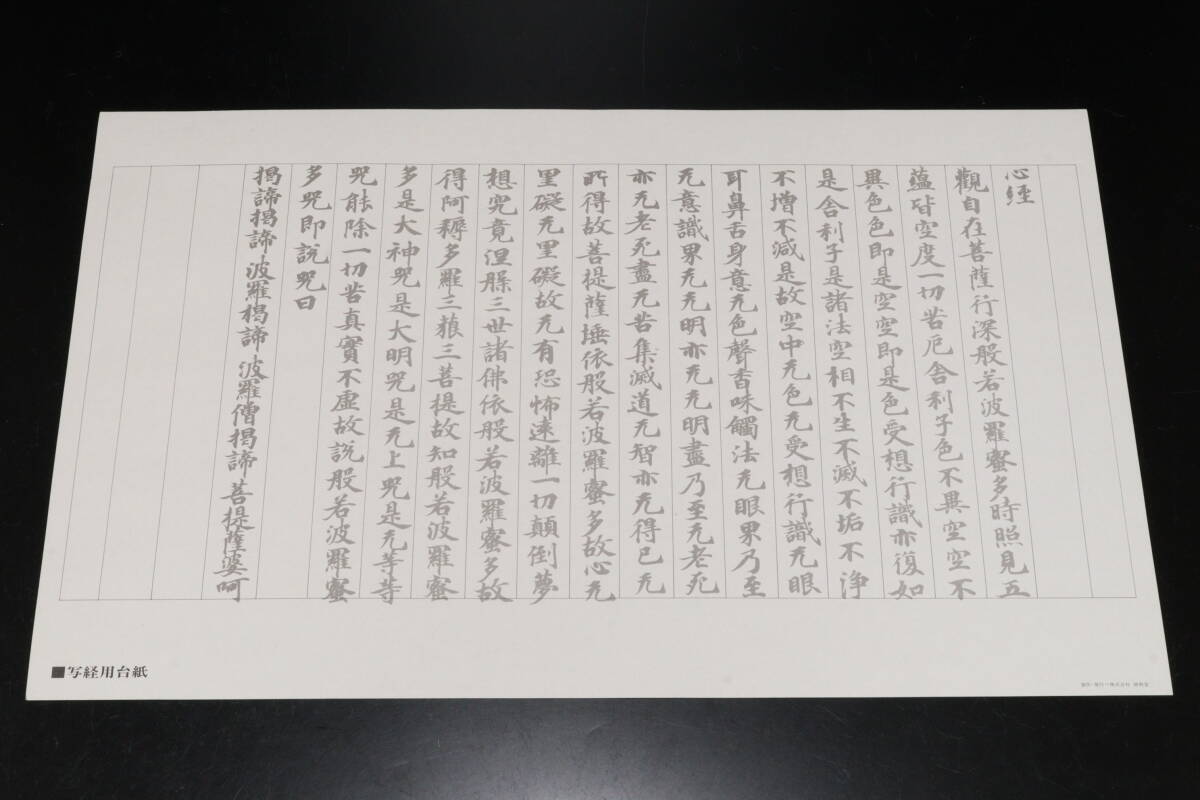 心経
觀自在菩薩行深般若波羅蜜多時照見五
蘊皆空度一切苦厄舎利子色不異空空不
異色色即是空空即是色受想行識亦復如
是舎利子是諸法空相不生不滅不垢不浄
不増不減是故空中无色无受想行識无眼
耳鼻舌身意无色聲香味觸法无眼界乃至
无意識界无无明亦无无明盡乃至无老死
亦无老死盡无苦集滅道无智亦无得已无
所得故菩提薩埵依般若波羅蜜多故心无
罣礙无罣礙故无有恐怖遠離一切顛倒夢
想究竟涅槃三世諸佛依般若波羅蜜多故
得阿耨多羅三藐三菩提故知般若波羅蜜
多是大神咒是大明咒是无上咒是无等等
咒能除一切苦真實不虚故説般若波羅蜜
多咒即説咒曰
揭諦揭諦 波羅揭諦 波羅僧揭諦 菩提薩婆呵
■写経用台紙